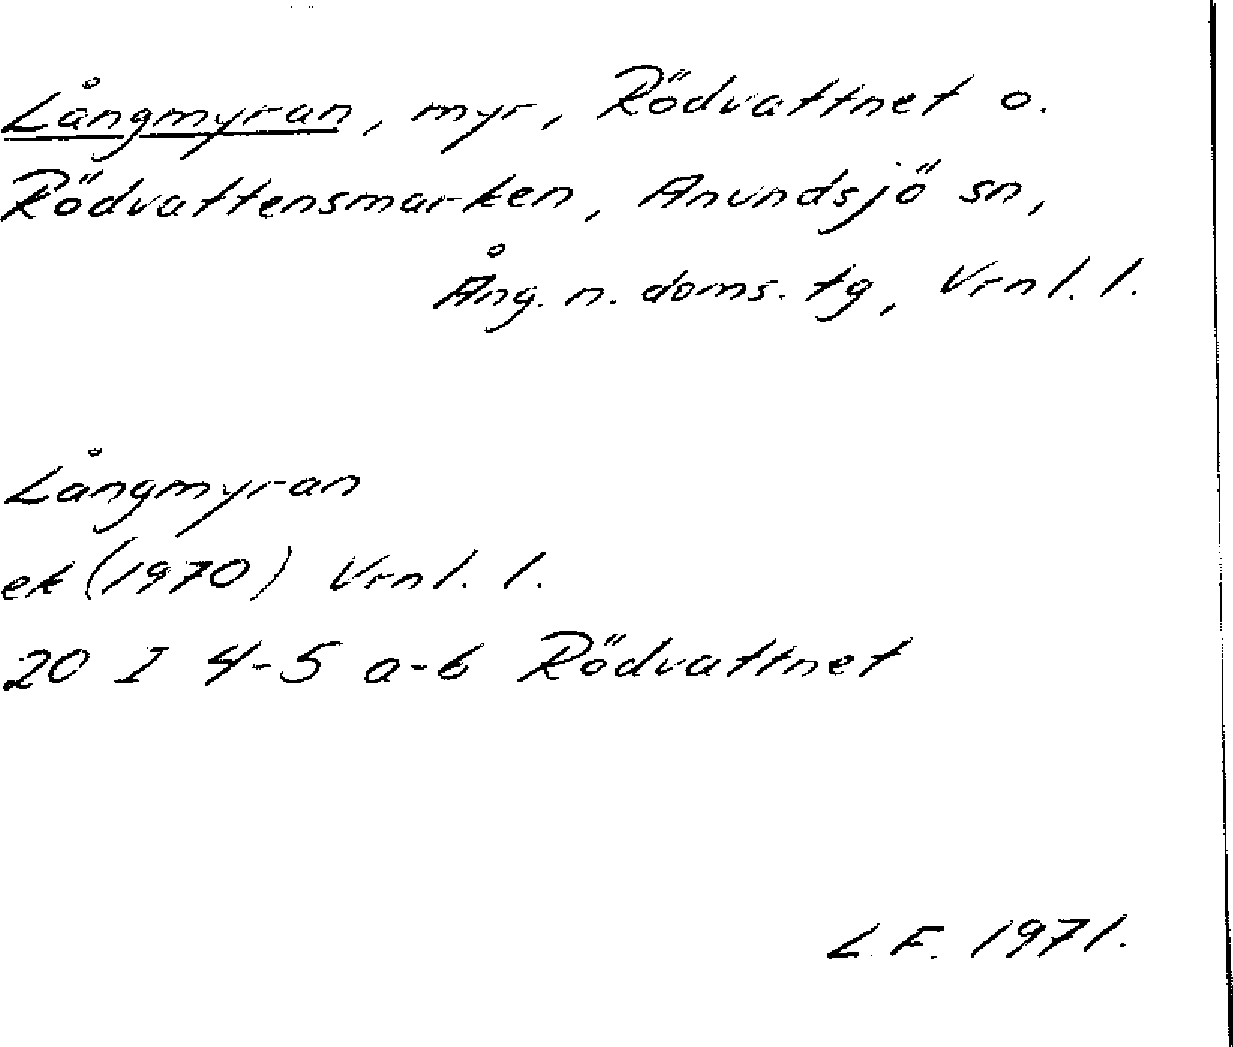 Långmyran, myr, Rödvattnet o.
Rödvattensmarken, Anundsjö sn,
Ång. n. doms. tg, Vrnl. l.
Långmyran
ek (1970) Vrnl. l.
20 I 4-5 a-b Rödvattnet
L.F. 1971.